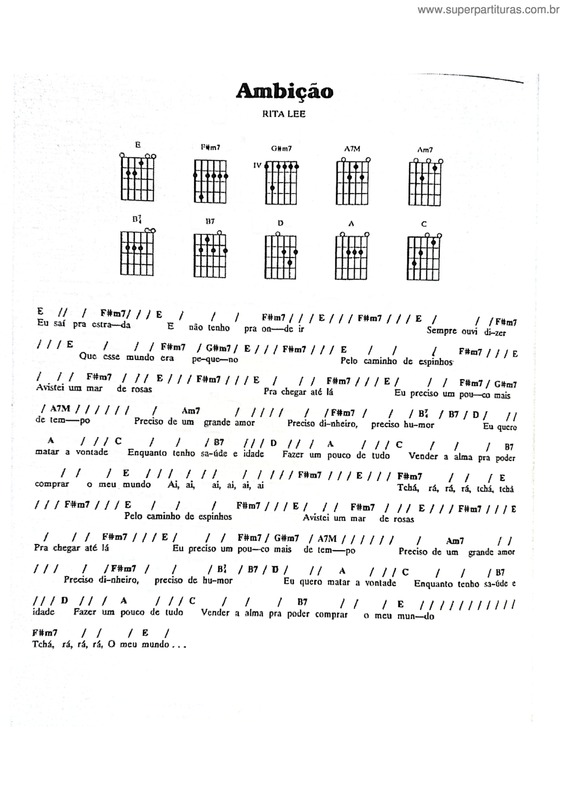 www.superpartituras.com.br
Ambição
RITA LEE
E F#m7 G#m7 A7M Am7
IV
B7/4 B7 D A C
E // / F#m7 / / / E / / / F#m7 / / / E / / / F#m7 / / / E / / / F#m7
Eu saí pra estra—da E não tenho pra on—de ir Sempre ouvi di-zer
/ / / E / / / F#m7 / G#m7 / E / / / F#m7 / / / E / / / F#m7 / / / E
Que esse mundo era pe-que—no Pelo caminho de espinhos
/ / / F#m7 / / / E / / / F#m7 / / / E / / / F#m7 / / / E / / / F#m7 / G#m7
Avistei um mar de rosas Pra chegar até lá Eu preciso um pou—co mais
/ A7M / / / / / / / Am7 / / / / / / /F#m7 / / / B7/4 / B7 / D / / /
de tem—po Preciso de um grande amor Preciso di-nheiro, preciso hu-mor Eu quero
A / / / C / / / B7 / / / D / / / A / / / C / / / B7
matar a vontade Enquanto tenho sa-úde e idade Fazer um pouco de tudo Vender a alma pra poder
/ / / E / / / / / / / / / / / F#m7 / / / E / / / F#m7 / / / E
comprar o meu mundo Ai, ai, ai, ai, ai, ai Tchá, rá, rá, rá, tchá, tchá
/ / / F#m7 / / / E / / / F#m7 / / / E / / / F#m7 / / / E / / / F#m7 / / / E
Pelo caminho de espinhos Avistei um mar de rosas
/ / / F#m7 / / / E / / / F#m7 / G#m7 / A7M / / / / / / / Am7 / /
Pra chegar até lá Eu preciso um pou—co mais de tem—po Preciso de um grande amor
/ / / / /F#m7 / / / B7/4 / B7 / D / / / A / / / C / / / B7
Preciso di-nheiro, preciso de hu-mor Eu quero matar a vontade Enquanto tenho sa-úde e
/ / / D / / / A / / / C / / / B7 / / / E / / / / / / / / / / /
idade Fazer um pouco de tudo Vender a alma pra poder comprar o meu mun—do
F#m7 / / / E /
Tchá, rá, rá, rá, O meu mundo . . .